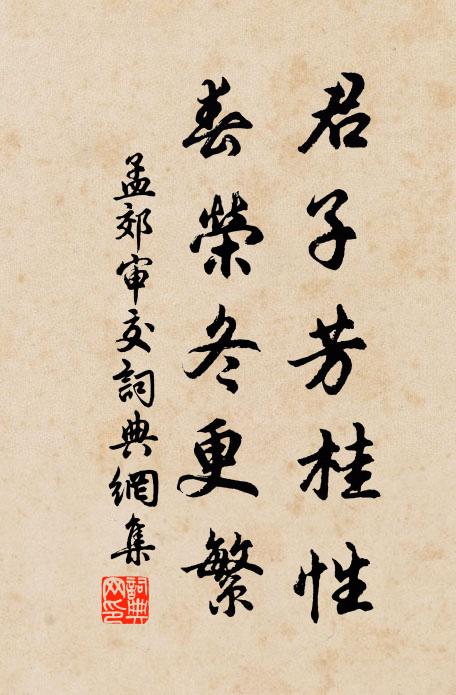 君子芳桂性
春榮冬更繁
孟郊审交詞典網集
詞典网印